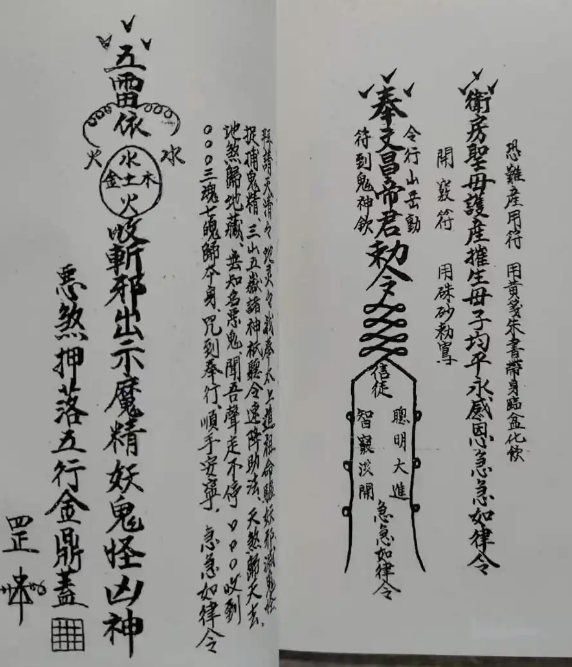 恐難產用符 用黃箋朱書帶身臨盆化飲
衛房聖母護產摧生母子均平永感恩急急如律令
開竅符 用硃砂勅寫
令行山岳動
奉文昌帝君勅令
符到鬼神欽
信徒
聰明大進
智竅淡開
急急如律令
拜請天清々地灵々我奉太上道祖命驅妖邪滅鬼怪
捉捕鬼精三山五嶽諸神祇聽令速降助法天煞歸天去、
地煞歸地藏、無知名惡鬼聞吾聲走不停○○○收到
○○○三魂七魄歸本身、咒到奉行順手安寧、急急如律令
五雷依
水
火
水
金土木
火
收斬邪出示魔精妖鬼怪凶神
惡煞押落五行金鼎蓋
罡